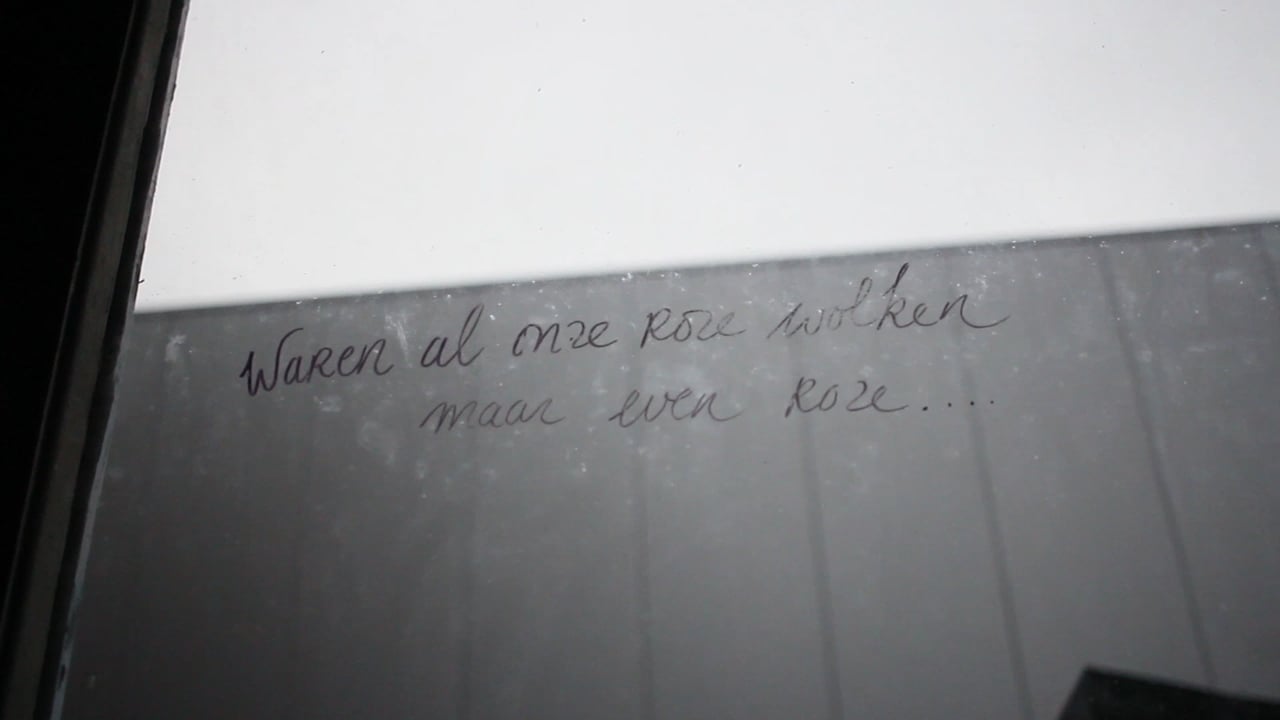 Waren al onze roze wolken
maar even roze....